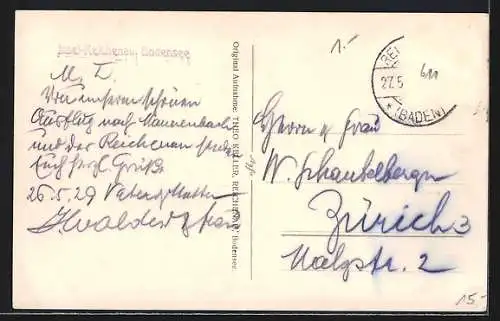 Insel-Reichenau, Bodensee
M. L.
Von unserem schönen
Ausflug nach Mannenbach
und der Reichenau
Euch herzl. Grüße
26.5.29 Vater, Mutter
Original Aufnahme: THEO KELLER, REICHENAU Bodensee.
1.-
REI
27.5
611
* (BADEN)
Herrn u Frau
W. Schaufelberger
Zürich 3
2
15.-